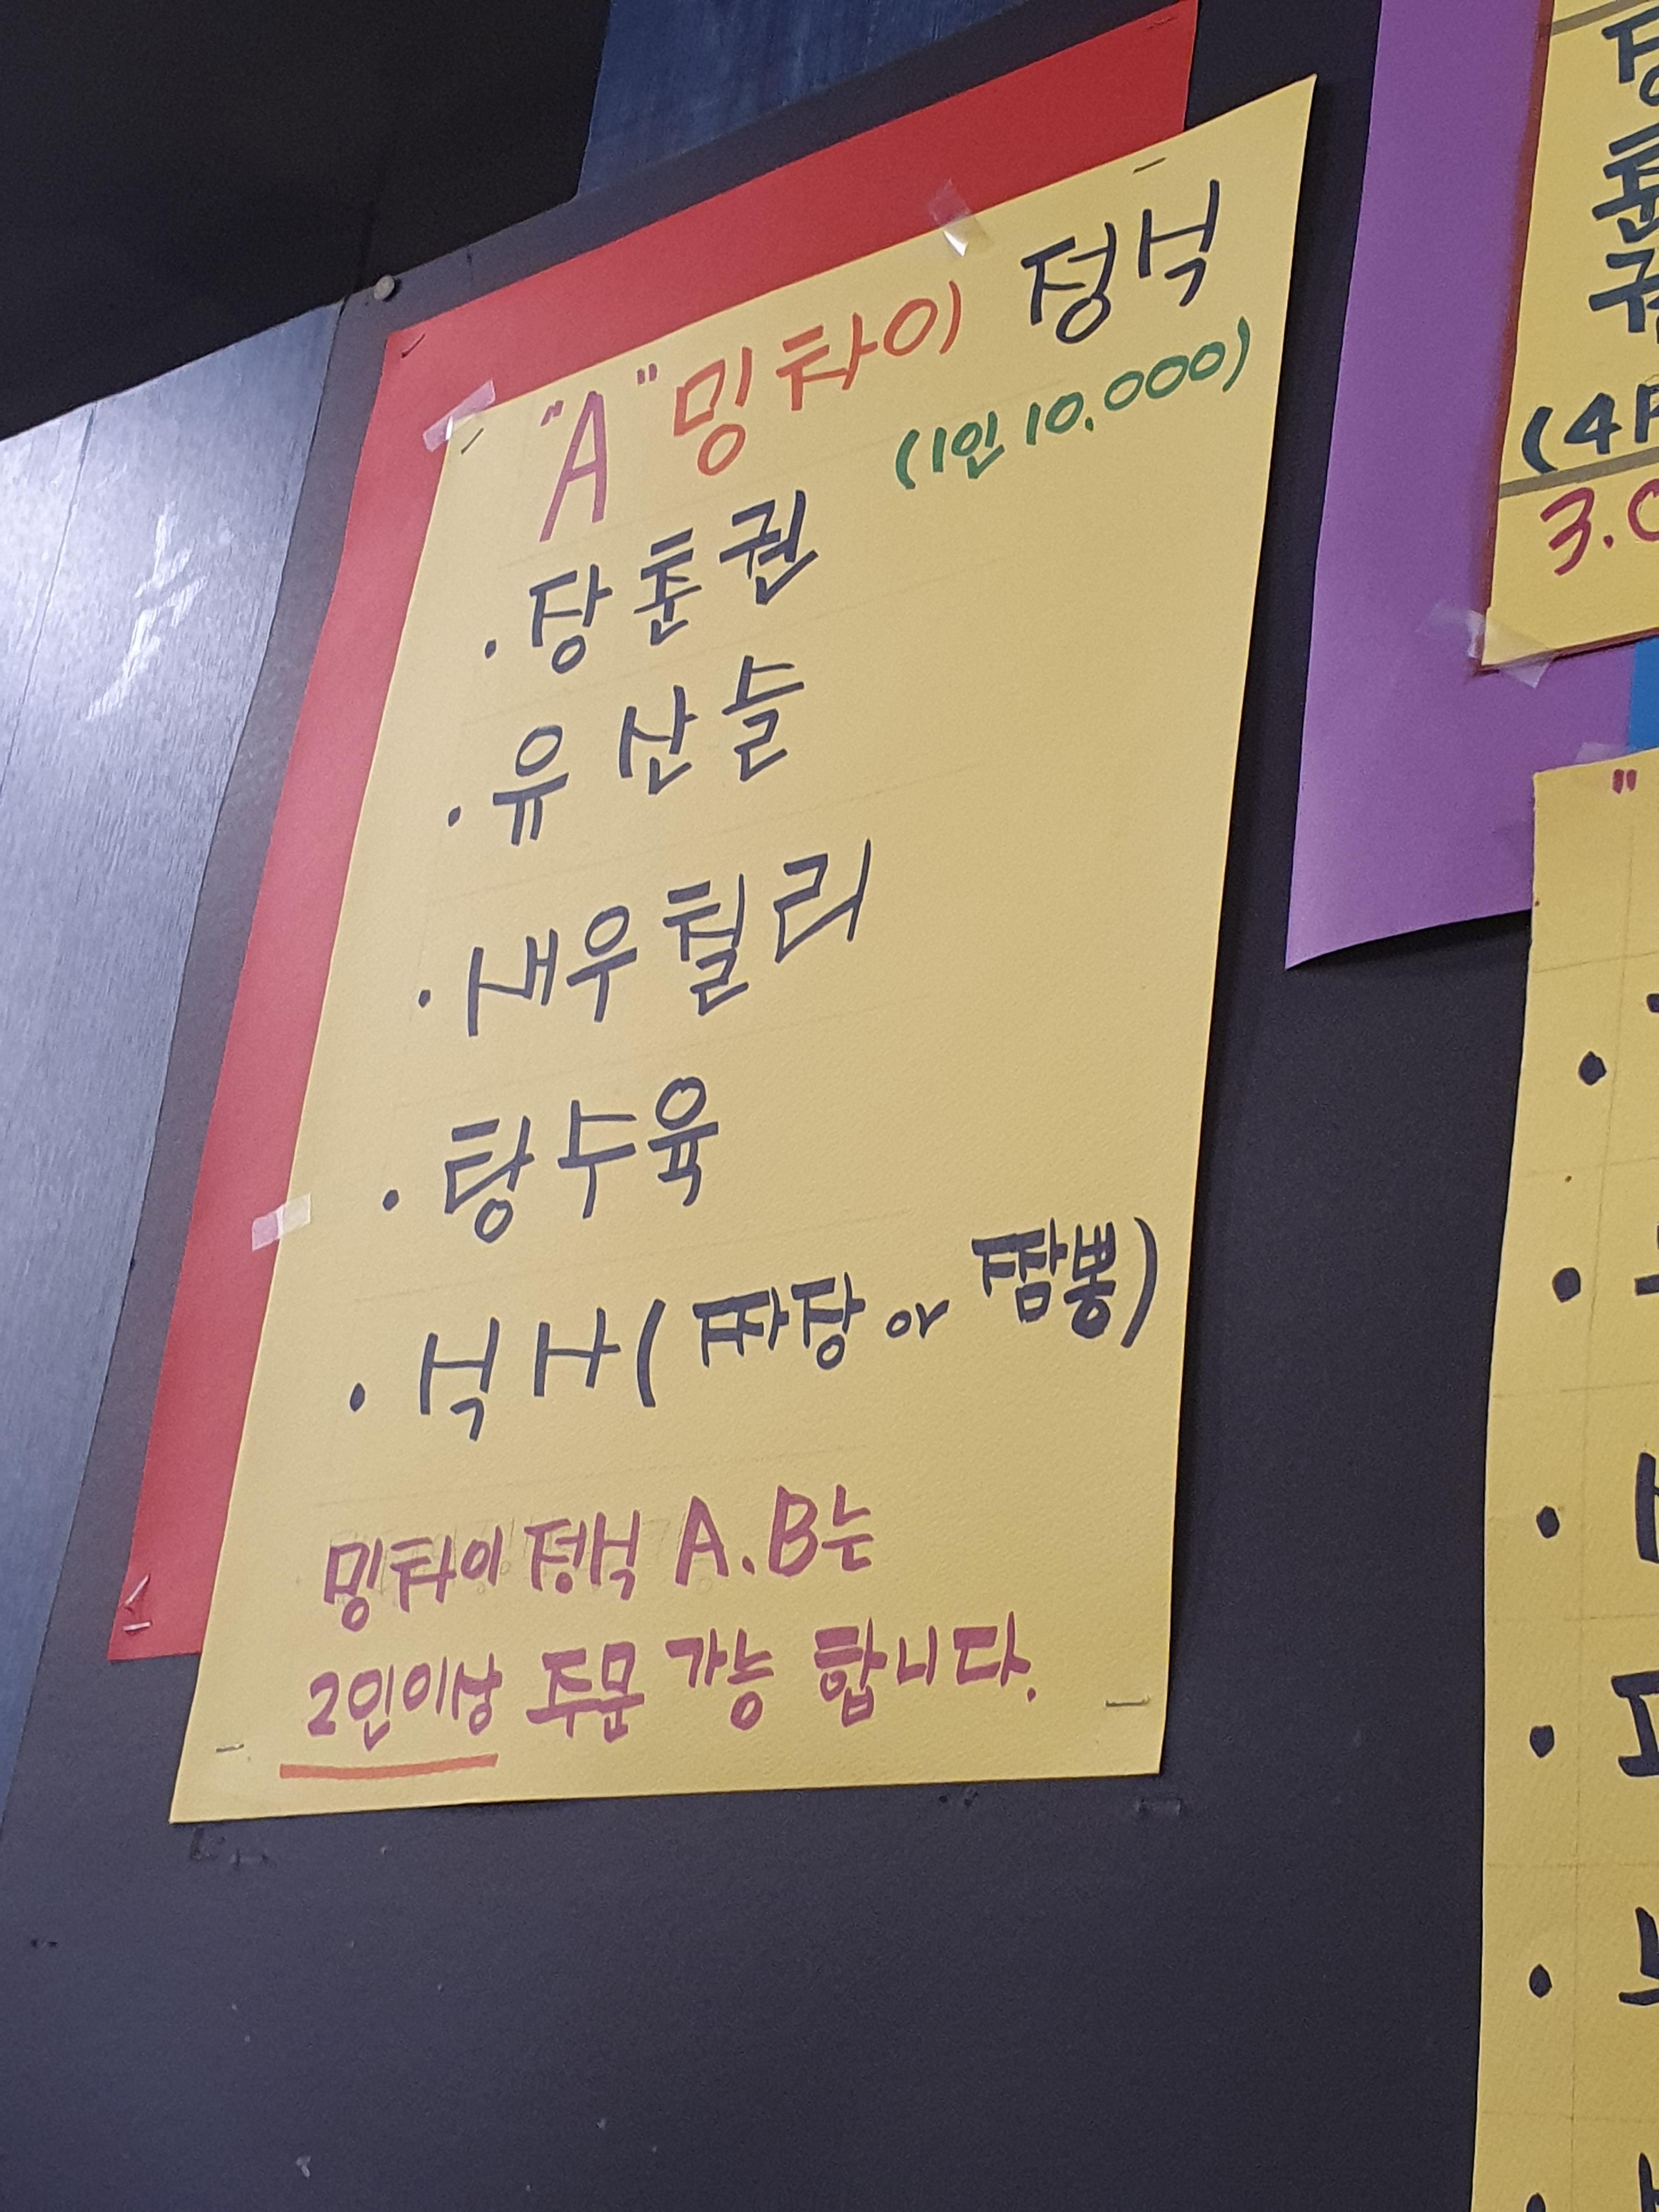 "A" 밍차이 정식
(1인 10.000)
· 장춘권
· 유산슬
· 새우칠리
· 탕수육
· 식사(짜장 or 짬뽕)
밍차이 정식 A.B는
2인이상 주문 가능 합니다.
장
춘
권
(4P
3.0
"